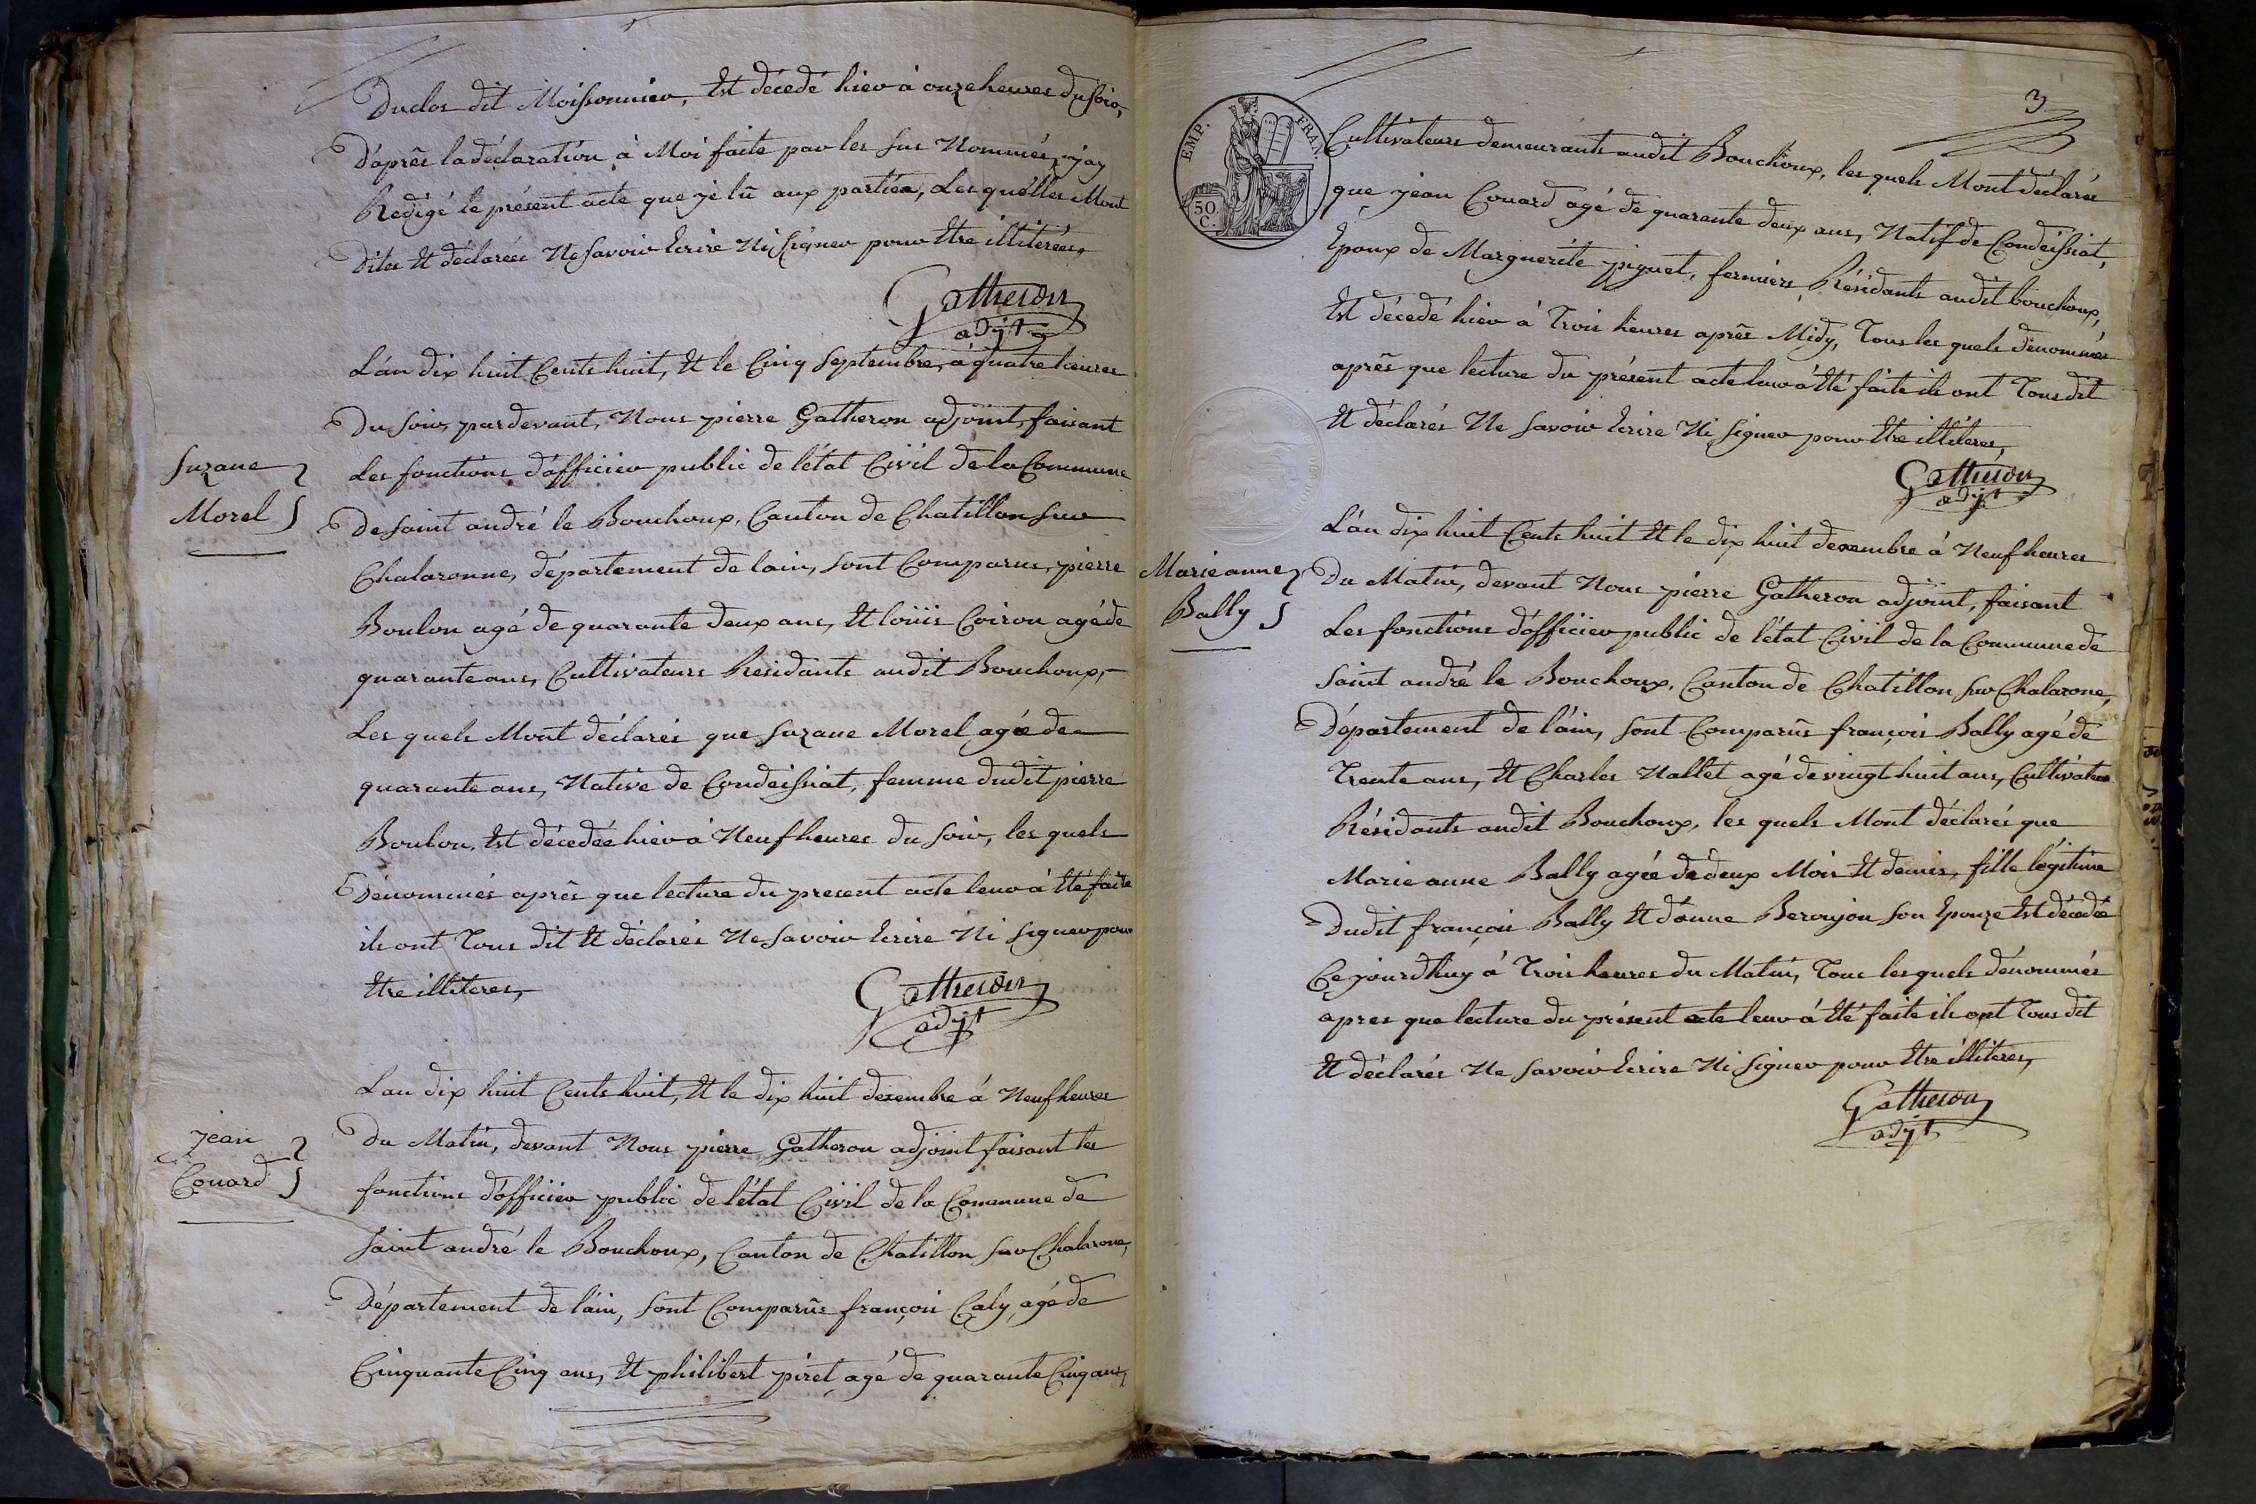 Duclos dit Moissonnier, Est décedé hier à onze heures du soir,
D'aprês la déclaration à Moi faite par les sus Nommés, j'ay
Redigé le présent acte que je lû aux parties, Les quelles Mont
Dites Et déclarées Ne savoir Ecrire Ni Signer pour Etre illiterées,
Gatheron
adjt
L'an dix huit Cents huit, Et le Cinq Septembre, à quatre heures
Du soir, pardevant, Nous pierre Gatheron adjoint, faisant
Les fonctions d'officier public de l'état Civil de la Commune
De Saint andré le Bouchoux, Canton de Chatillon sur
Chalaronne, département de lain, sont Comparus, pierre
Boulon agé de quarante deux ans, Et loüis Coiron agé de
quarante ans, Cultivateurs Residants audit Bouchoux,
Les quels Mont déclarés que Suzane Morel agée de
quarante ans, Native de Condeissiat, femme dudit pierre
Boulon, Est décedée hier à Neuf heures du soir, les quels
Dénommés aprês que lecture du present acte leur à Eté faite
ils ont Tous dit Et déclarés Ne savoir Ecrire Ni Signer pour
Etre illiteres,
Gatheron
adjt
Suzane
Morel
L'an dix huit Cents huit, Et le dix huit desembre à Neuf heures
Du Matin, devant Nous pierre Gatheron adjoint faisant les
fonctions d'officier public de l'état Civil de la Commune de
Saint andré le Bouchoux, Canton de Chatillon sur Chalarone,
Département de l'ain, sont Comparûs françois Caly, agé de
Cinquante Cinq ans, Et philibert piret agé de quarante Cinq ans,
jean
Couard
3
EMP. FRAN.
50
C.
Cultivateurs demeurants audit Bouchoux, les quels Mont déclarés
que jean Couard agé de quarante deux ans, Natif de Condeissiat,
Epoux de Marguerite piguet, fermiers Résidants audit bouchoux,
Est décedé hier à Trois heures aprês Midy, Tous les quels dénommés
aprês que lecture du présent acte leur à Eté faite ils ont Tous dit
Et déclarés Ne savoir Ecrire Ni Signer pour Etre illiteres,
Gatheron
adjt
L'an dix huit Cents huit Et le dix huit desembre à Neuf heures
Du Matin, devant Nous pierre Gatheron adjoint, faisant
Les fonctions d'officier public de l'état Civil de la Commune de
Saint andré le Bouchoux, Canton de Chatillon sur Chalarone,
Département de l'ain, sont Comparûs françois Bally agé de
Trente ans, Et Charles Nallet agé de vingt huit ans, Cultivateurs
Résidants audit Bouchoux, les quels Mont déclarés que
Marie anne Bally agée de deux Mois Et demis, fille légitime
Dudit françois Bally Et d'anne Beroujon son Epouze Est décedée
Ce jourdhuy à Trois heures du Matin, Tous les quels dénommés
apres que lecture du présent acte leur à Eté faite ils ont Tous dit
Et déclarés Ne savoir Ecrire Ni Signer pour Etre illiteres,
Gatheron
adjt
Marie anne
Bally